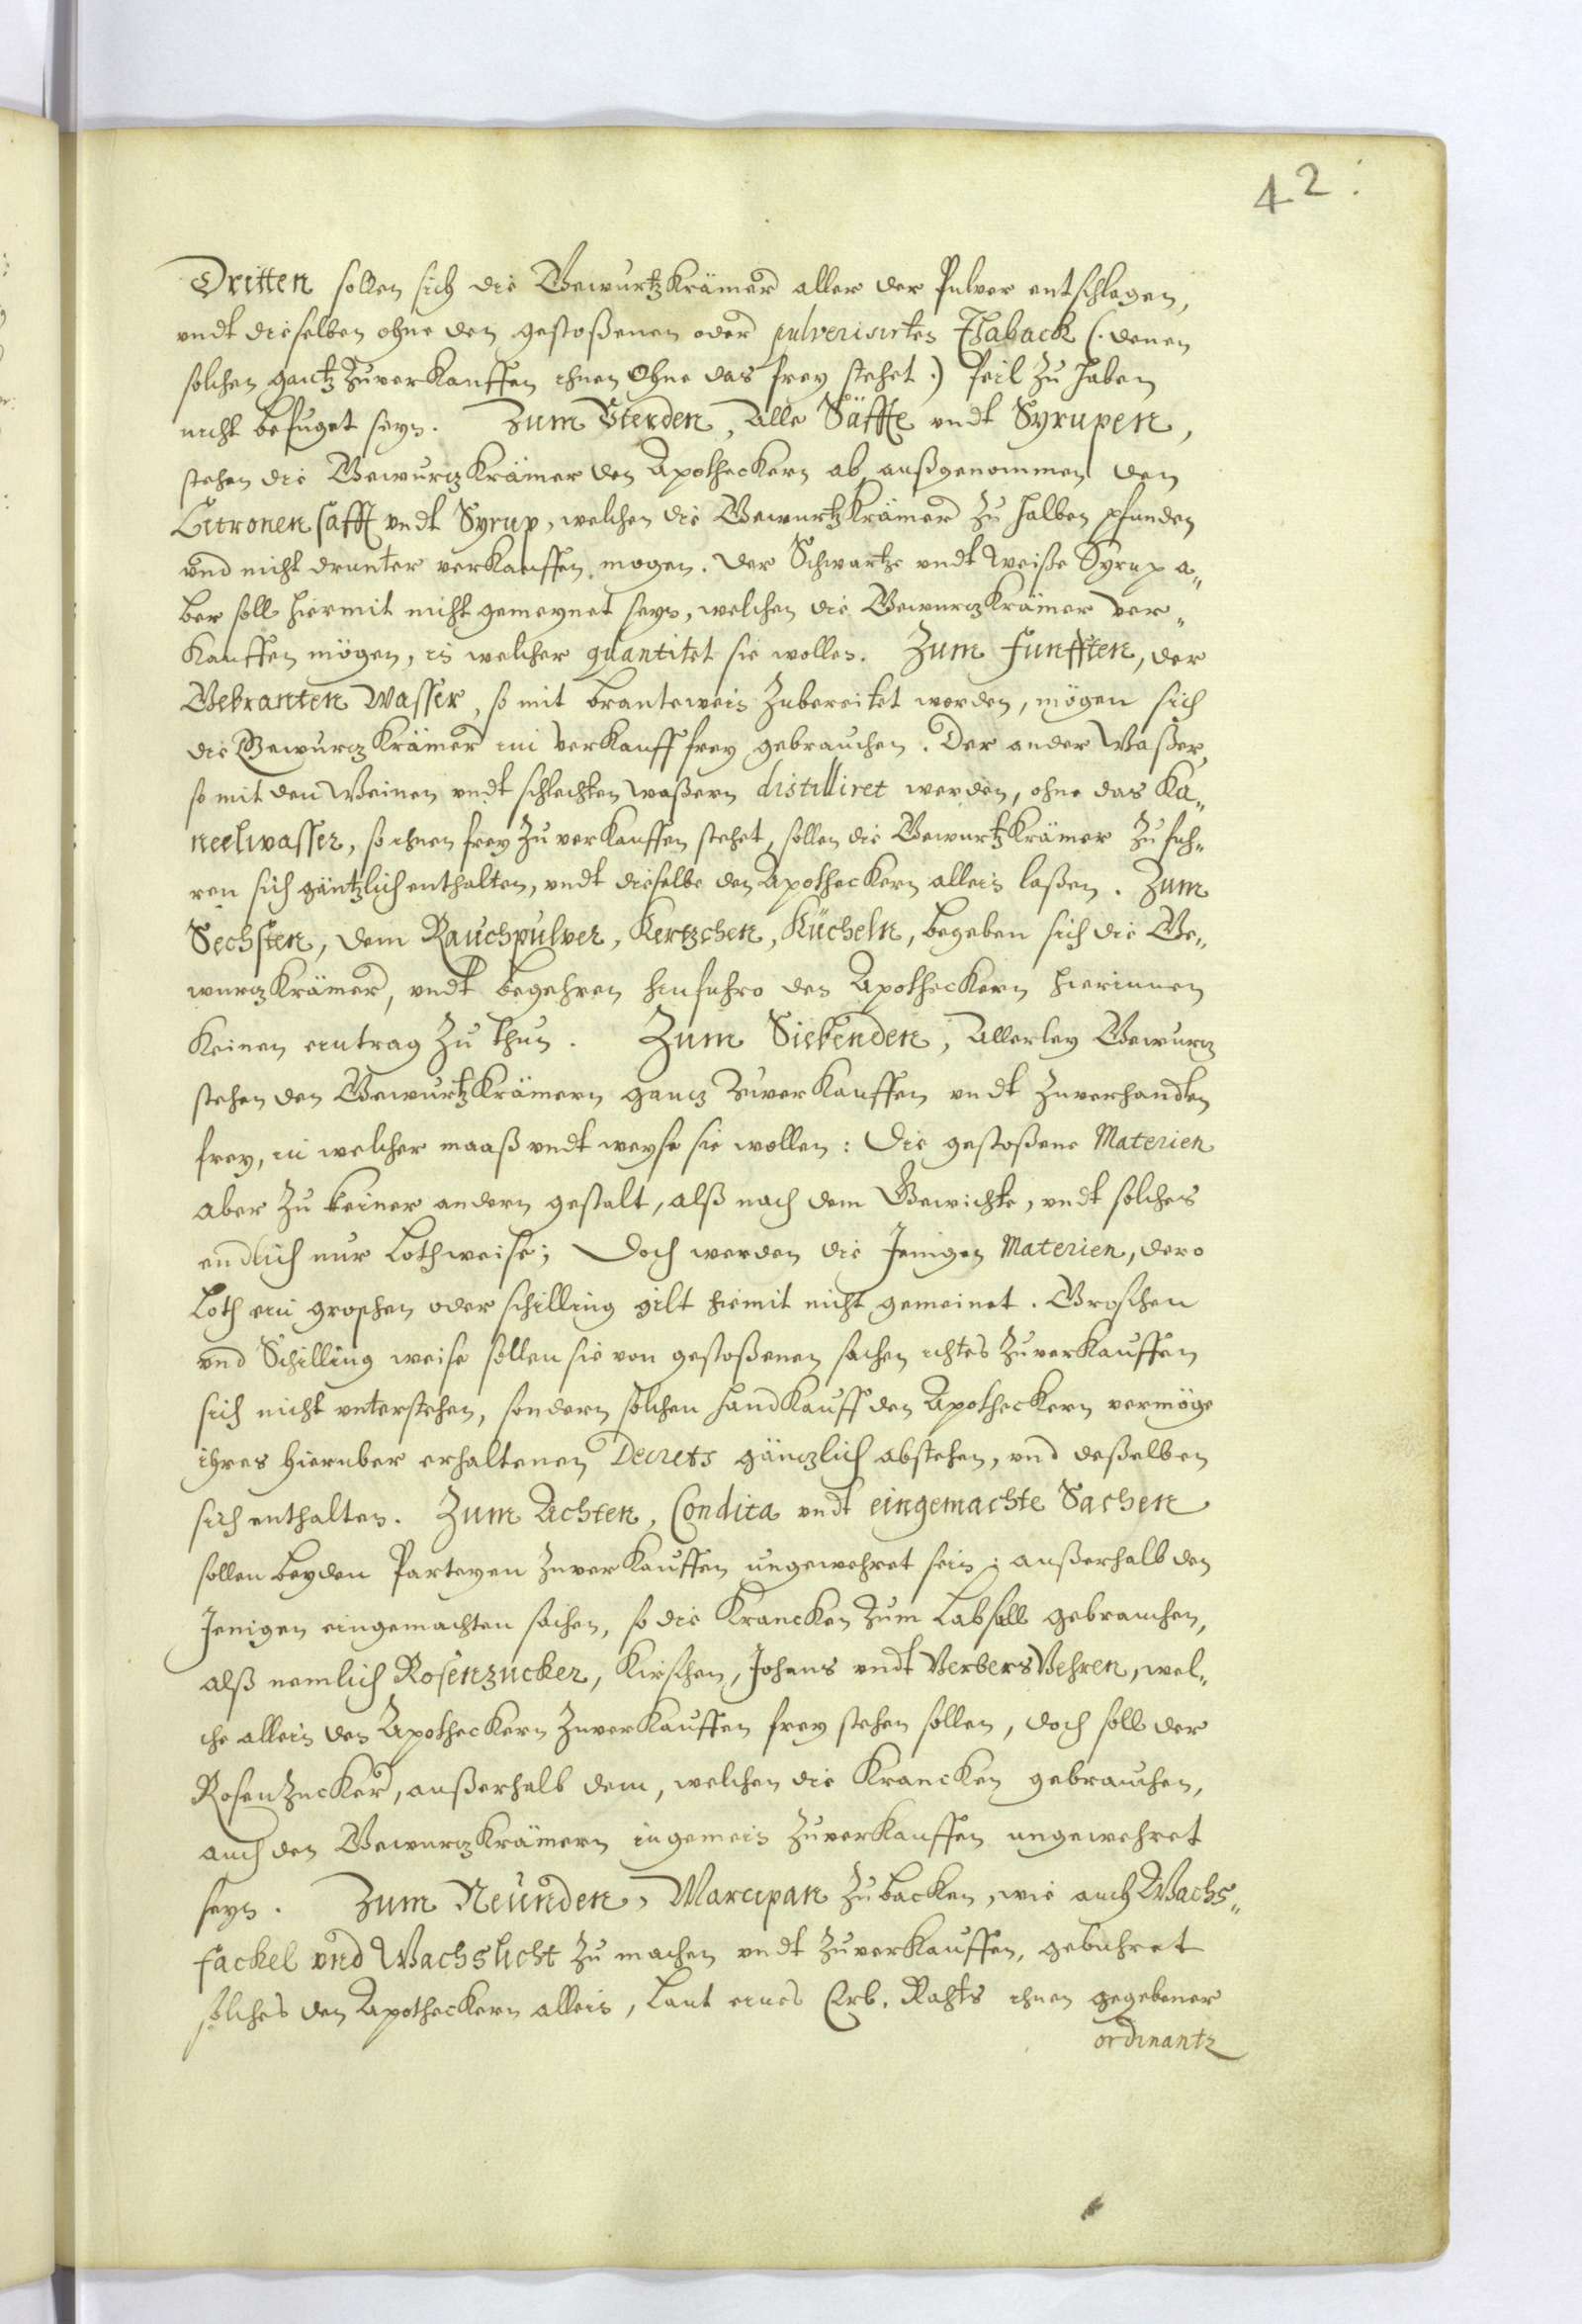 42.
Dritten sollen sich die Gewurtzkrämer aller der Pulver entschlagen,
vndt dieselben ohne den gestoßenen oder pulverisirten Thaback (. denen
solchen gantz zu verkauffen ihnen ohne das frey stehet .) feil zu haben
nicht befuget seyn. Zum Vierden, Alle Säffte vndt Syrupen,
stehen die Gewurczkrämer den Apotheckern ab, außgenommen den
Citronensafft vndt Syrup, welchen die Gewurtzkrämer zu halben pfunden
vnd nicht drunter verkauffen mogen. Der Schwartze vndt Weiße Syrup a„
ber soll hiermit nicht gemeynet seyn, welchen die Gewurczkrämer ver„
kauffen mögen, in welcher quantitet sie wollen. Zum Funfften, der
Gebranten Wasser, so mit branteweis zubereitet werden, mögen sich
die Gewurczkrämer im verkauff frey gebrauchen. Der ander Waßer,
so mit den Weinen vndt schlechten waßern distilliret werden, ohne das Ka„
neelwasser, so ihnen frey zu verkauffen stehet, sollen die Gewurtzkrämer zu fuh„
ren sich gäntzlich enthalten, vndt dieselbe den Apotheckern allein laßen. Zum
Sechsten, dem Rauchpulver, Kertzchen, Kücheln, begeben sich die Ge„
wurczkrämer, vndt begehren hinfuhro den Apotheckern hierinnen
keinen eintrag zu thun. Zum Siebenden, Allerley Gewurcz
stehen den Gewurtzkrämern gancz zuverkauffen vndt zuverhandlen
frey, in welcher maaß vndt weyse sie wollen: Die gestoßene Materien
aber zu keiner andern gestalt, alß nach dem Gewichte, vndt solches
endlich nur Lothweise; Doch werden die Jenigen Materien, dero
Loth ein groschen oder schilling gilt hiemit nicht gemeinet. Groschen
vnd Schilling weise sollen sie von gestoßenen sachen ichtes zuverkauffen
sich nicht vnterstehen, sondern solchen handkauff den Apotheckern vermöge
ihres hieruber erhaltenen Decrets gänczlich abstehen, vnd deßelben
sich enthalten. Zum Achten, Condita vndt eingemachte Sachen
sollen beyden Parteyen zuverkauffen ungewehret sein; außerhalb den
Jenigen eingemachten sachen, so die Krancken zum Labsall gebrauchen,
alß nemlich Rosenzucker, Kirschen, Johans vndt VerbersBehren, wel„
che allein den Apotheckern zuverkauffen frey stehen sollen, doch soll der
Rosenzucker, außerhalb dem, welchen die Krancken gebrauchen,
auch den Gewurczkrämern ingemein zuverkauffen ungewehret
seyn. Zum Neunden, Marcipan zubacken, wie auch Wachs„
fackel vnd Wachslicht zu machen vndt zuverkauffen, gebuhret
solches den Apotheckern allein, Laut eines Erb. Rahts ihnen gegebener
ordinantz